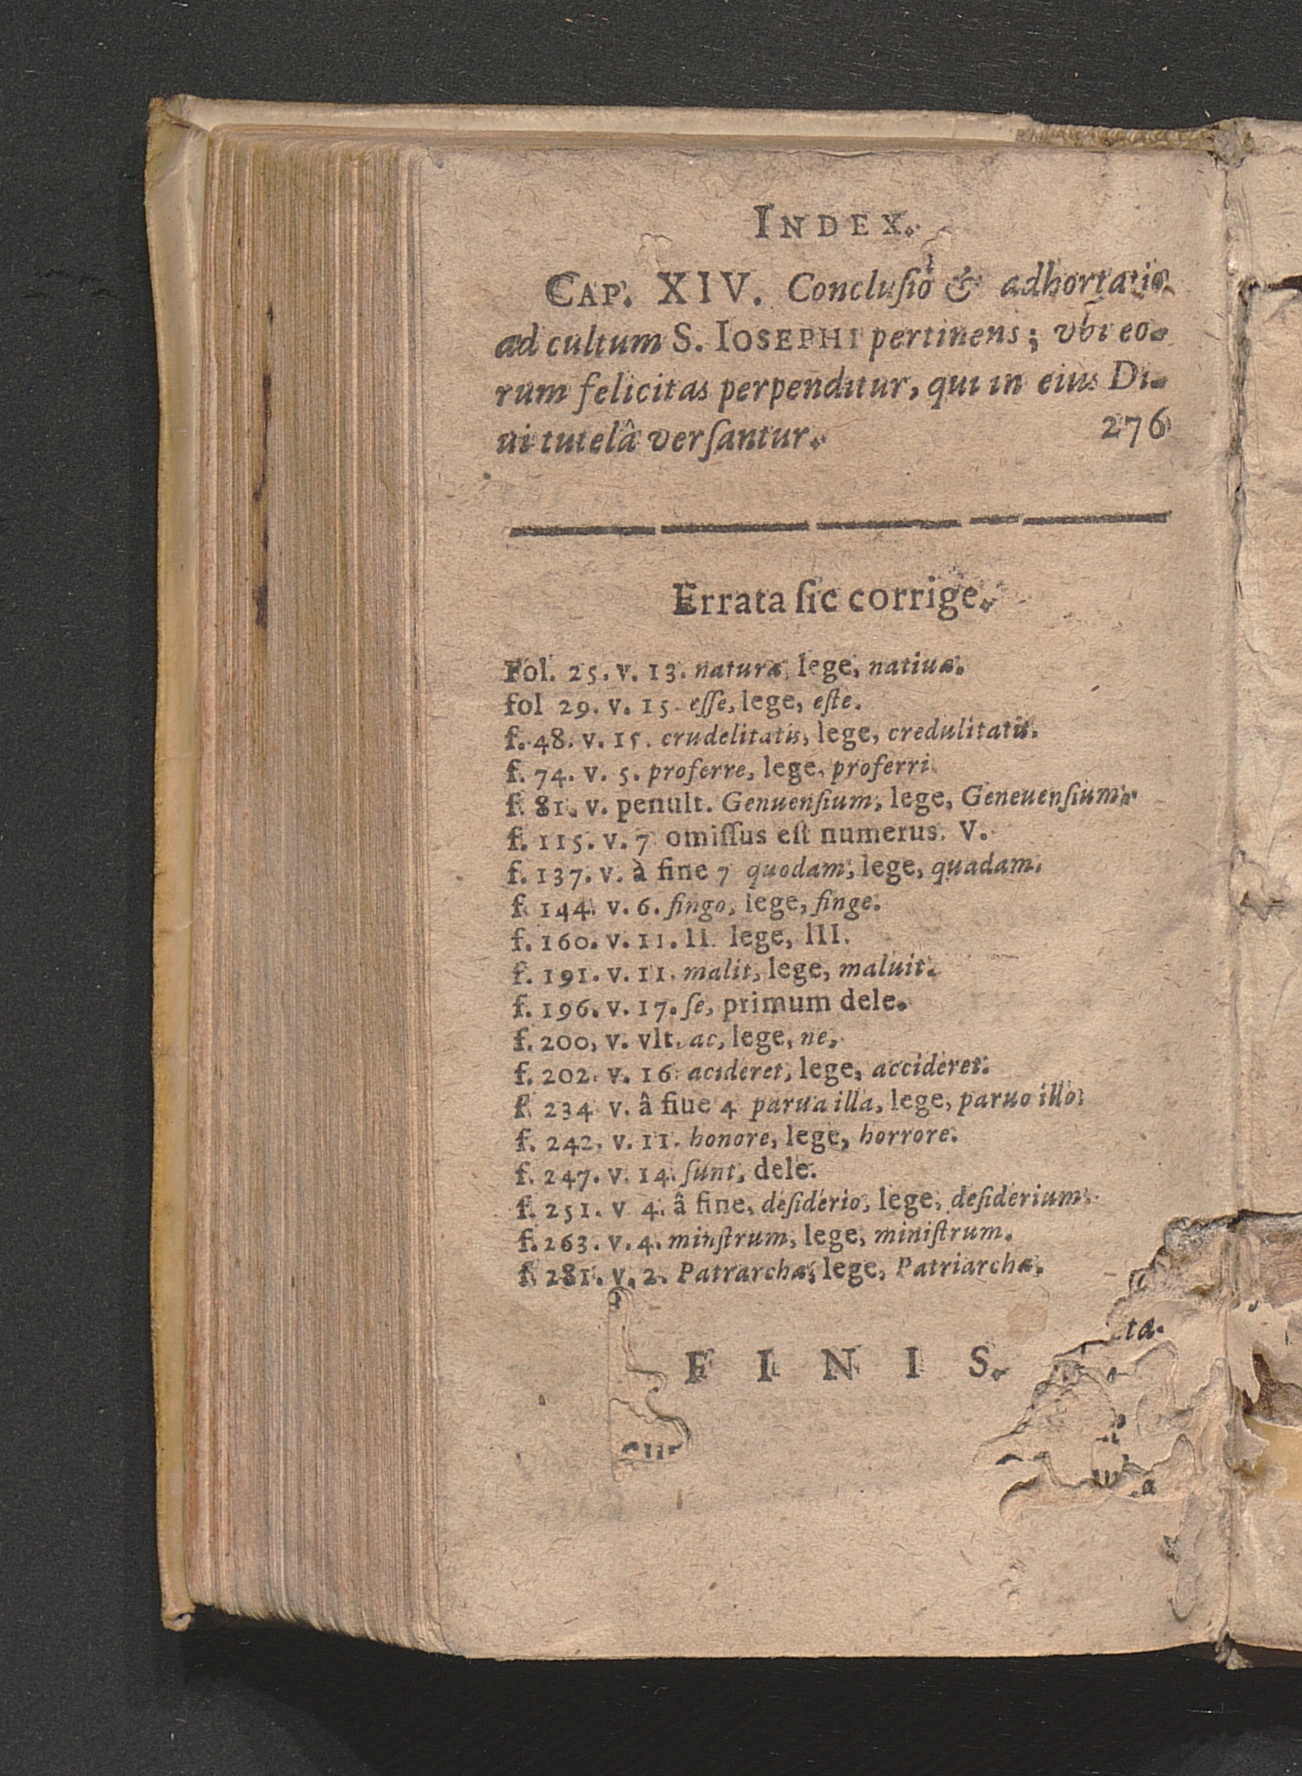 INDEX.
CAP. XIV. Conclusiõ & adhortatio
ad cultum S. IOSEPHI pertinens; vbi eo-
rum felicitas perpenditur, qui in eius Di-
ui tutelâ versantur. 276
Errata sic corrige.
Fol. 25. v. 13. naturæ, lege, natiuæ.
fol 29. v. 15. esse, lege, este.
f. 48. v. 15. crudelitatis, lege, credulitatis.
f. 74. v. 5. proferre, lege, proferri.
f. 81. v. penult. Genuensium, lege, Geneuensium.
f. 115. v. 7 omissus est numerus. V.
f. 137. v. à fine 7 quodam, lege, quadam.
f. 144. v. 6. fingo, lege, finge.
f. 160. v. 11. II. lege, III.
f. 191. v. 11. malit, lege, maluit.
f. 196. v. 17. se, primum dele.
f. 200, v. vlt. ac, lege, ne,
f. 202. v. 16. acideret, lege, accideret.
f. 234 v. â fiue 4 parua illa, lege, paruo illo.
f. 242. v. 11. honore, lege, horrore.
f. 247. v. 14. sunt, dele.
f. 251. v 4. â fine, desiderio, lege, desiderium.
f. 263. v. 4. minstrum, lege, ministrum.
f. 281. v. 2. Patrarchæ, lege, Patriarchæ.
FINIS.